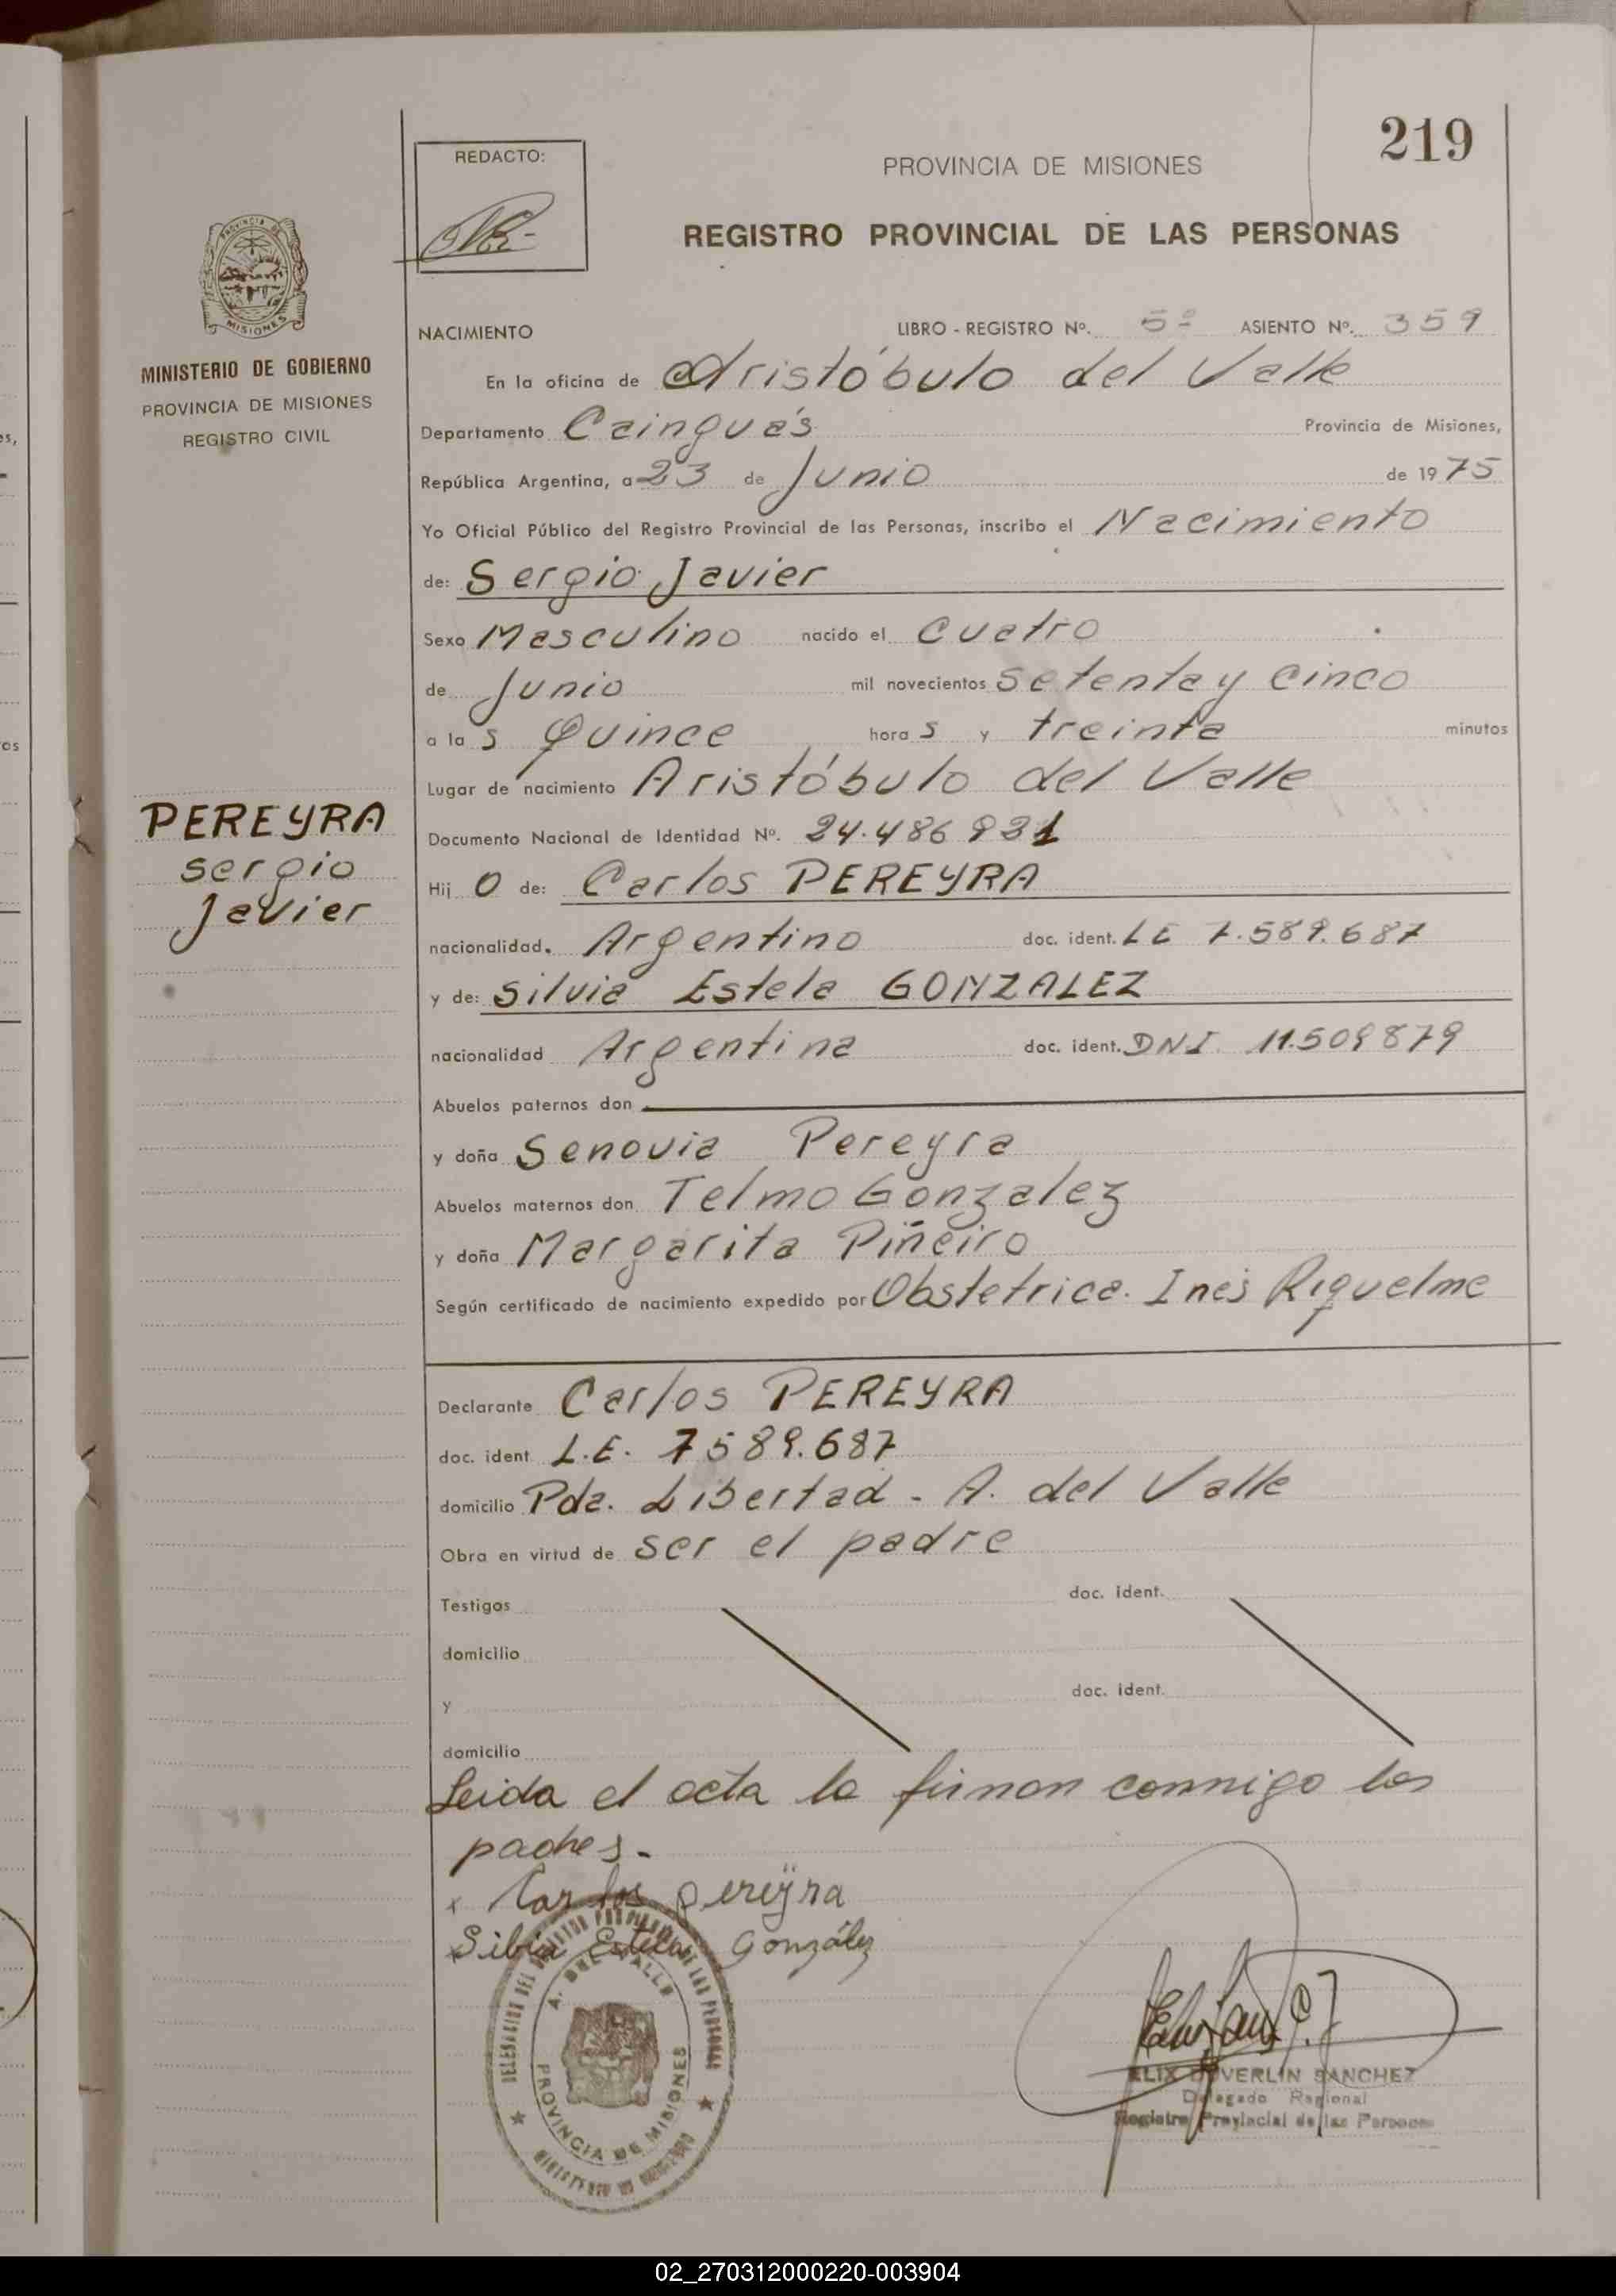 219
REDACTO:
PROVINCIA DE MISIONES
REGISTRO PROVINCIAL DE LAS PERSONAS
MISIONES
MINISTERIO DE GOBIERNO
PROVINCIA DE MISIONES
REGISTRO CIVIL
NACIMIENTO LIBRO - REGISTRO Nº. 5º ASIENTO Nº. 359
En la oficina de Aristóbulo del Valle
Departamento Cainguás Provincia de Misiones,
República Argentina, a 23 de Junio de 1975
Yo Oficial Público del Registro Provincial de las Personas, inscribo el Nacimiento
de: Sergio Javier
Sexo Masculino nacido el cuatro
de Junio mil novecientos setenta y cinco
a las Quince horas y treinta minutos
Lugar de nacimiento Aristóbulo del Valle
PEREYRA
Sergio
Javier
Documento Nacional de Identidad Nº. 24.486.931
Hijo de: Carlos PEREYRA
nacionalidad. Argentino doc. ident. LE 7.589.687
y de: Silvia Estela GONZALEZ
nacionalidad Argentina doc. ident. DNI. 11.509879
Abuelos paternos don
y doña Senovia Pereyra
Abuelos maternos don Telmo Gonzalez
y doña Margarita Piñeiro
Según certificado de nacimiento expedido por Obstetrica. Inés Riquelme
Declarante Carlos PEREYRA
doc. ident L.E. 7589.687
domicilio Pda. Libertad - A. del Valle
Obra en virtud de ser el padre
Testigos doc. ident.
domicilio
y doc. ident.
domicilio
Leida el acta la firman conmigo los
padres.-
x Carlos pereÿra
x Silvia Estela González
A. DEL VALLE
PROVINCIA DE MISIONES
ELIX DUVERLIN SANCHEZ
Delegado Regional
Registro Provincial de las Personas
02_270312000220-003904